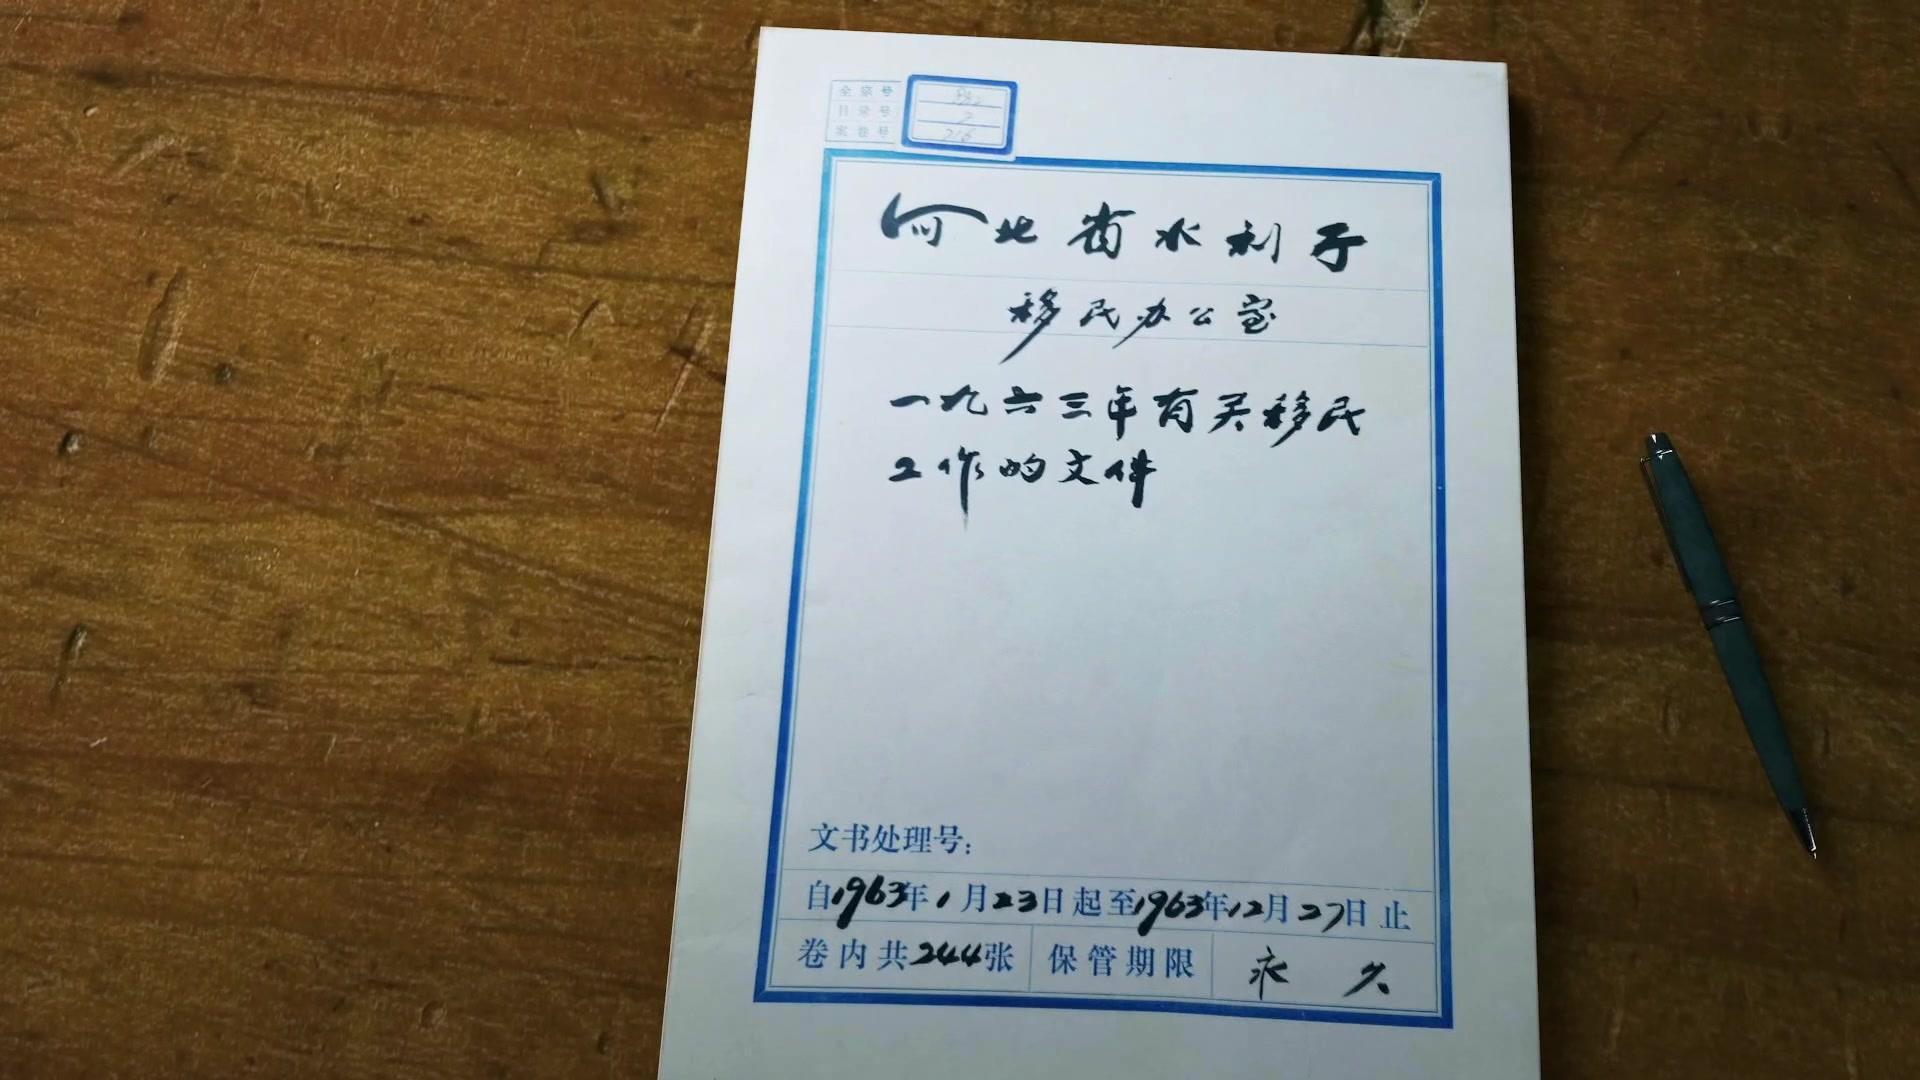 全宗号
目录号 2
案卷号 216
河北省水利厅
移民办公室
一九六三年有关移民
工作的文件
文书处理号：
自1963年1月23日起至1963年12月27日止
卷内共244张 保管期限 永久